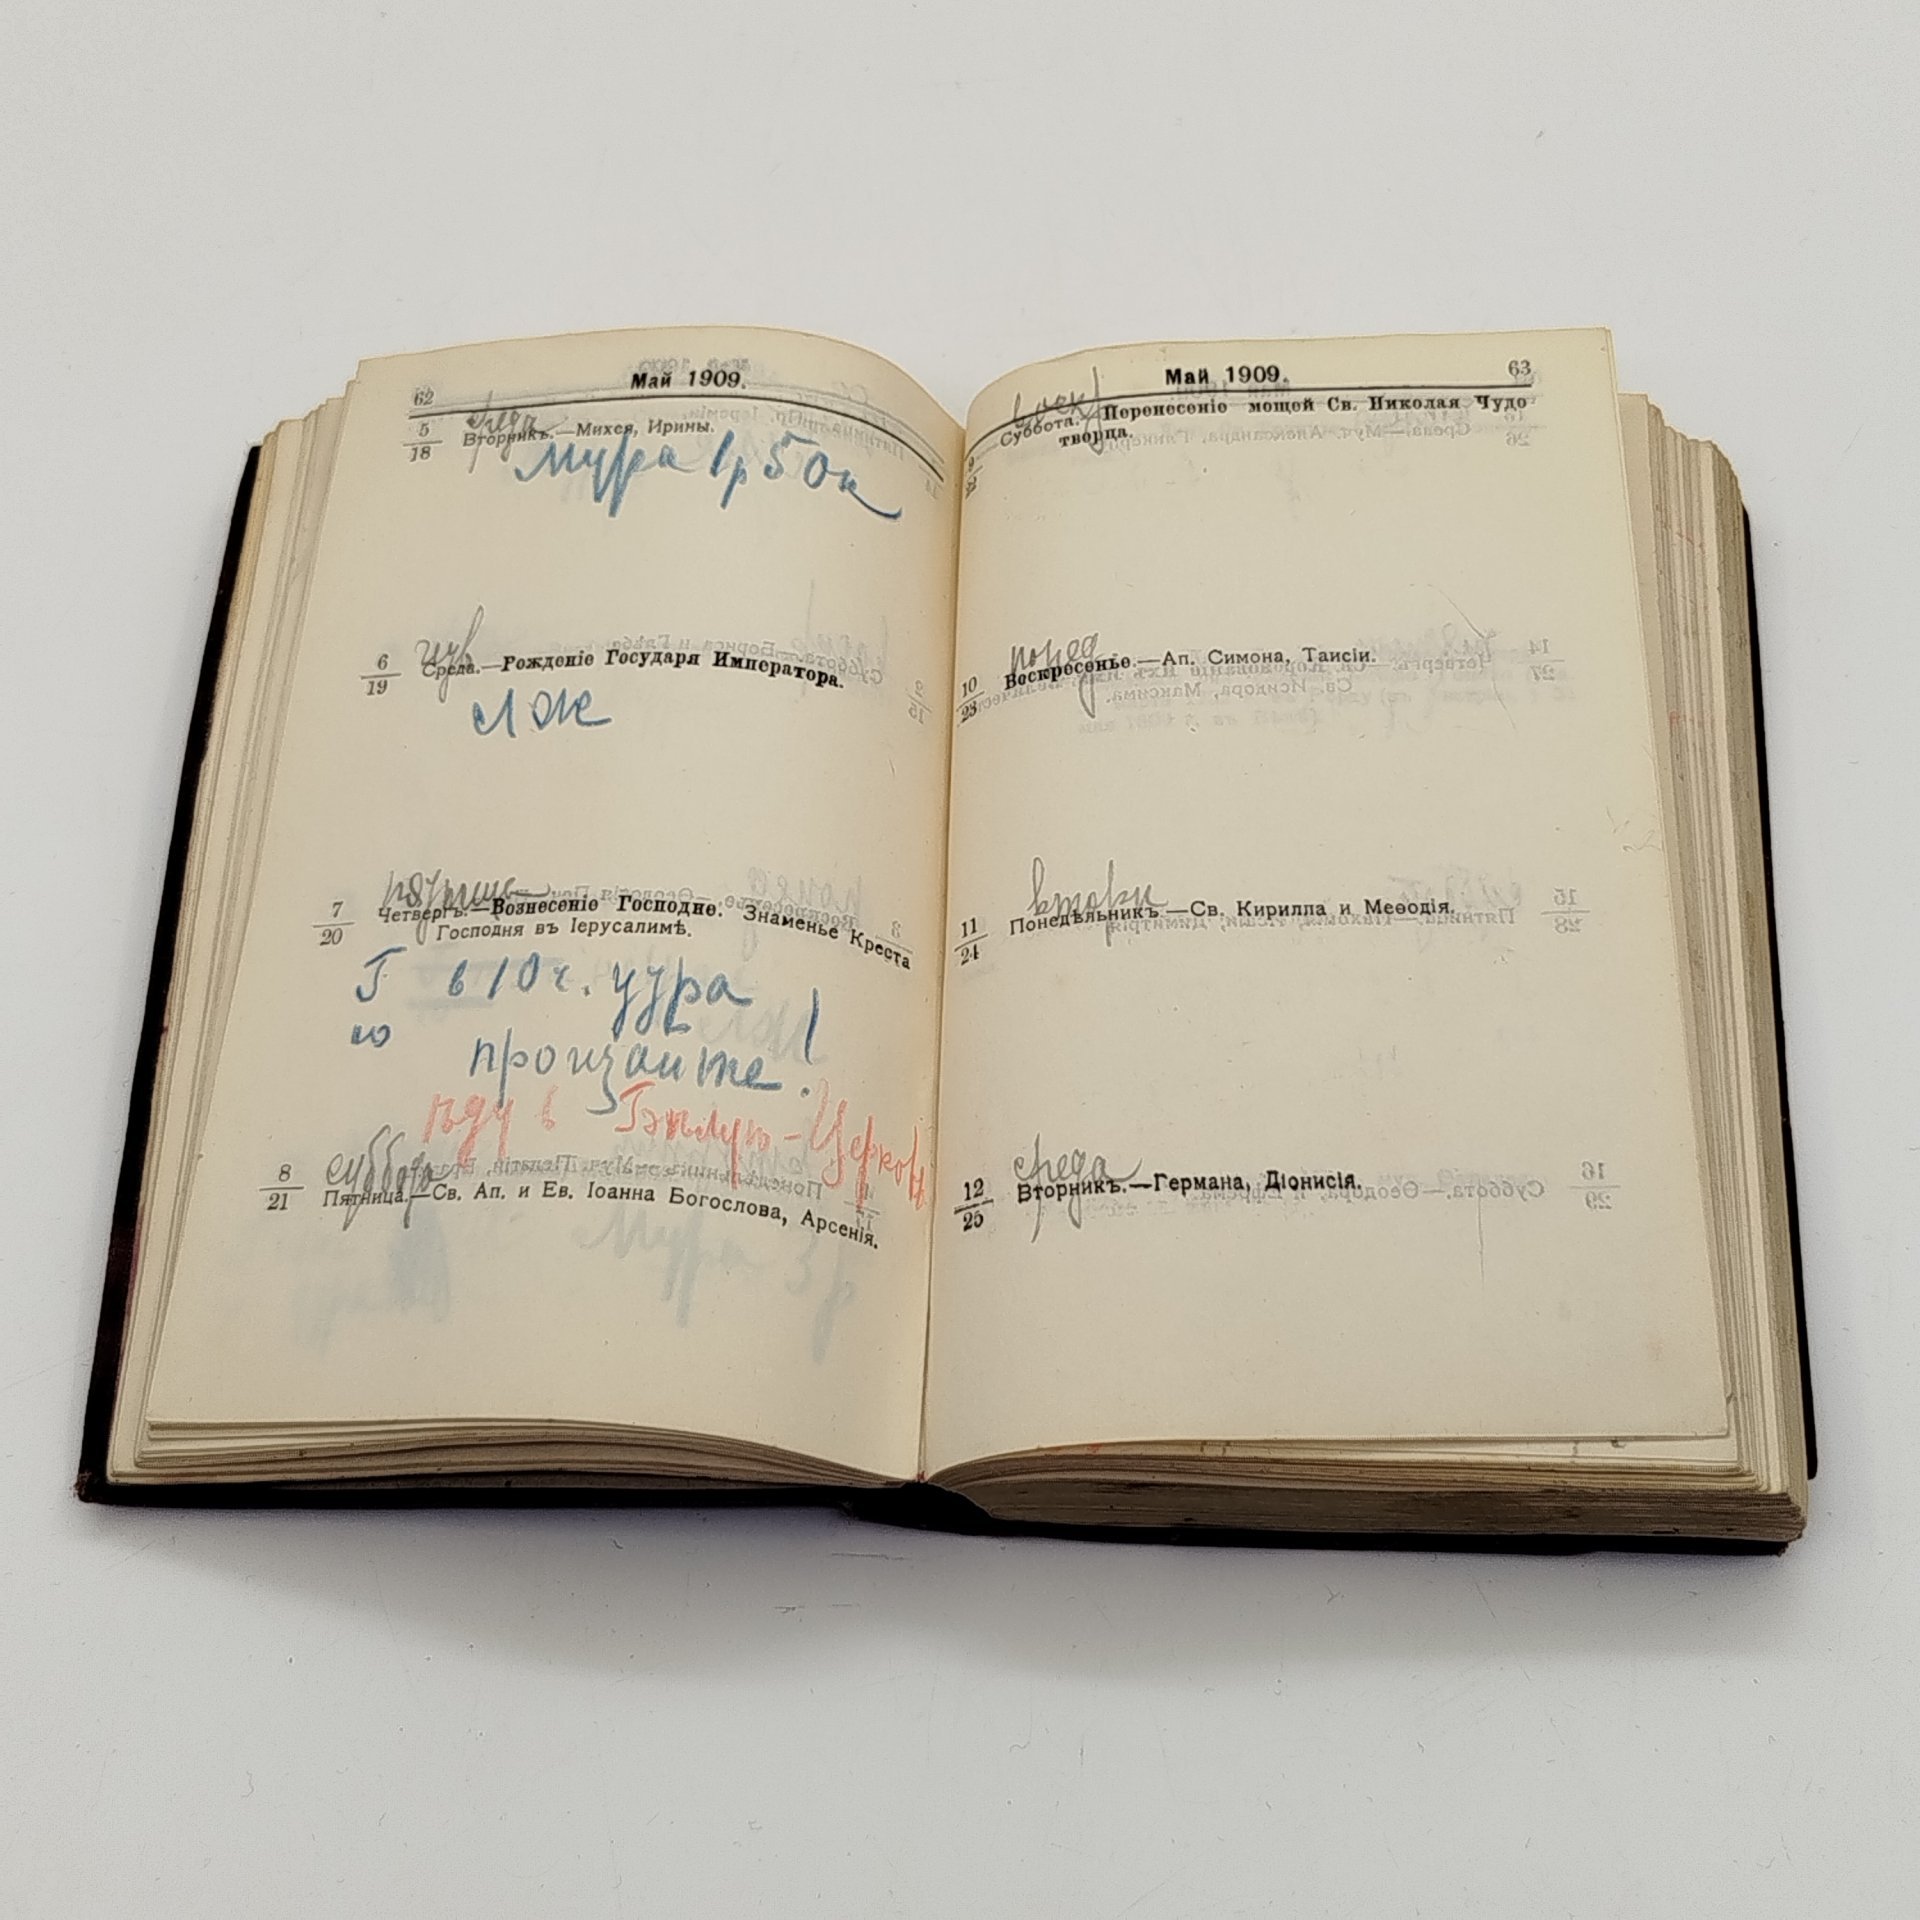 62
Май 1909.
среда
5
18
Вторникъ.—Михея, Ирины.
Мура 1р 50к
6
19
четв
Среда.—Рожденіе Государя Императора.
7
20
Четвергъ.—Вознесеніе Господне. Знаменье Креста
Господня въ Іерусалимѣ.
в 10 ч. утра
прощайте!
ѣду в Бѣлую-Церковь
суббота
8
21
Пятница.—Св. Ап. и Ев. Іоанна Богослова, Арсенія.
Май 1909.
63
воскр
9
22
Суббота.—Перенесеніе мощей Св. Николая Чудо
творца.
понед
10
23
Воскресенье.—Ап. Симона, Таисіи.
вторн
11
24
Понедѣльникъ.—Св. Кирилла и Меѳодія.
среда
12
25
Вторникъ.—Германа, Діонисія.